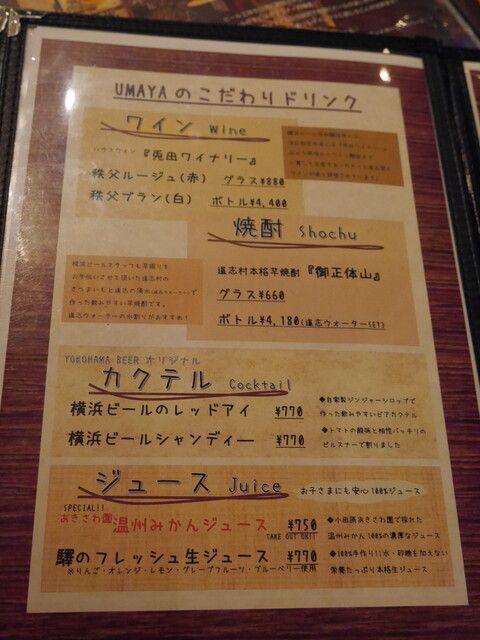 UMAYAのこだわりドリンク
ワイン Wine
ハウスワイン 『兎田ワイナリー』
秩父ルージュ(赤) グラス¥880
秩父ブラン(白) ボトル¥4,400
焼酎 Shochu
道志村本格芋焼酎『御正体山』
グラス¥660
ボトル¥4,180(道志ウォーターSET)
横浜ビールスタッフも芋掘りを
お手伝いさせて頂いた道志村の
さつまいもと道志の湧水(道志ウォーター)で
作った飲みやすい芋焼酎です。
道志ウォーターの水割りがおすすめ!
YOKOHAMA BEER オリジナル
カクテル Cocktail
横浜ビールのレッドアイ ¥770
横浜ビールシャンディー ¥770
◆自家製ジンジャーシロップで
作った飲みやすいビアカクテル
◆トマトの酸味と相性バッチリの
ピルスナーで割りました
ジュース Juice お子さまにも安心100%ジュース
SPECIAL!!
あきさわ園 温州みかんジュース ¥750
TAKE OUT OK!!
◆小田原あきさわ園で採れた
温州みかん100%の濃厚なジュース
驛のフレッシュ生ジュース ¥770
※りんご・オレンジ・レモン・グレープフルーツ・ブルーベリー使用
◆100%手作り!!水・砂糖を加えない
栄養たっぷり本格生ジュース